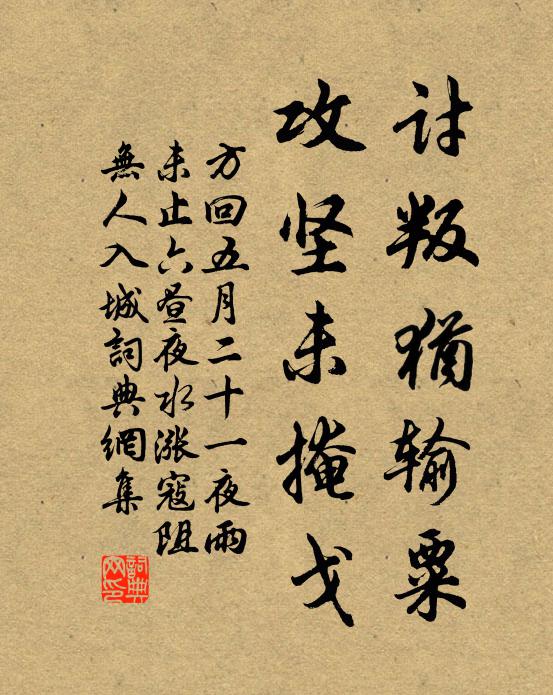 讨叛犹输粟
攻坚未掩戈
方回五月二十一夜雨
未止六昼夜水涨寇阻
無人入城詞典網集
詞典
网印